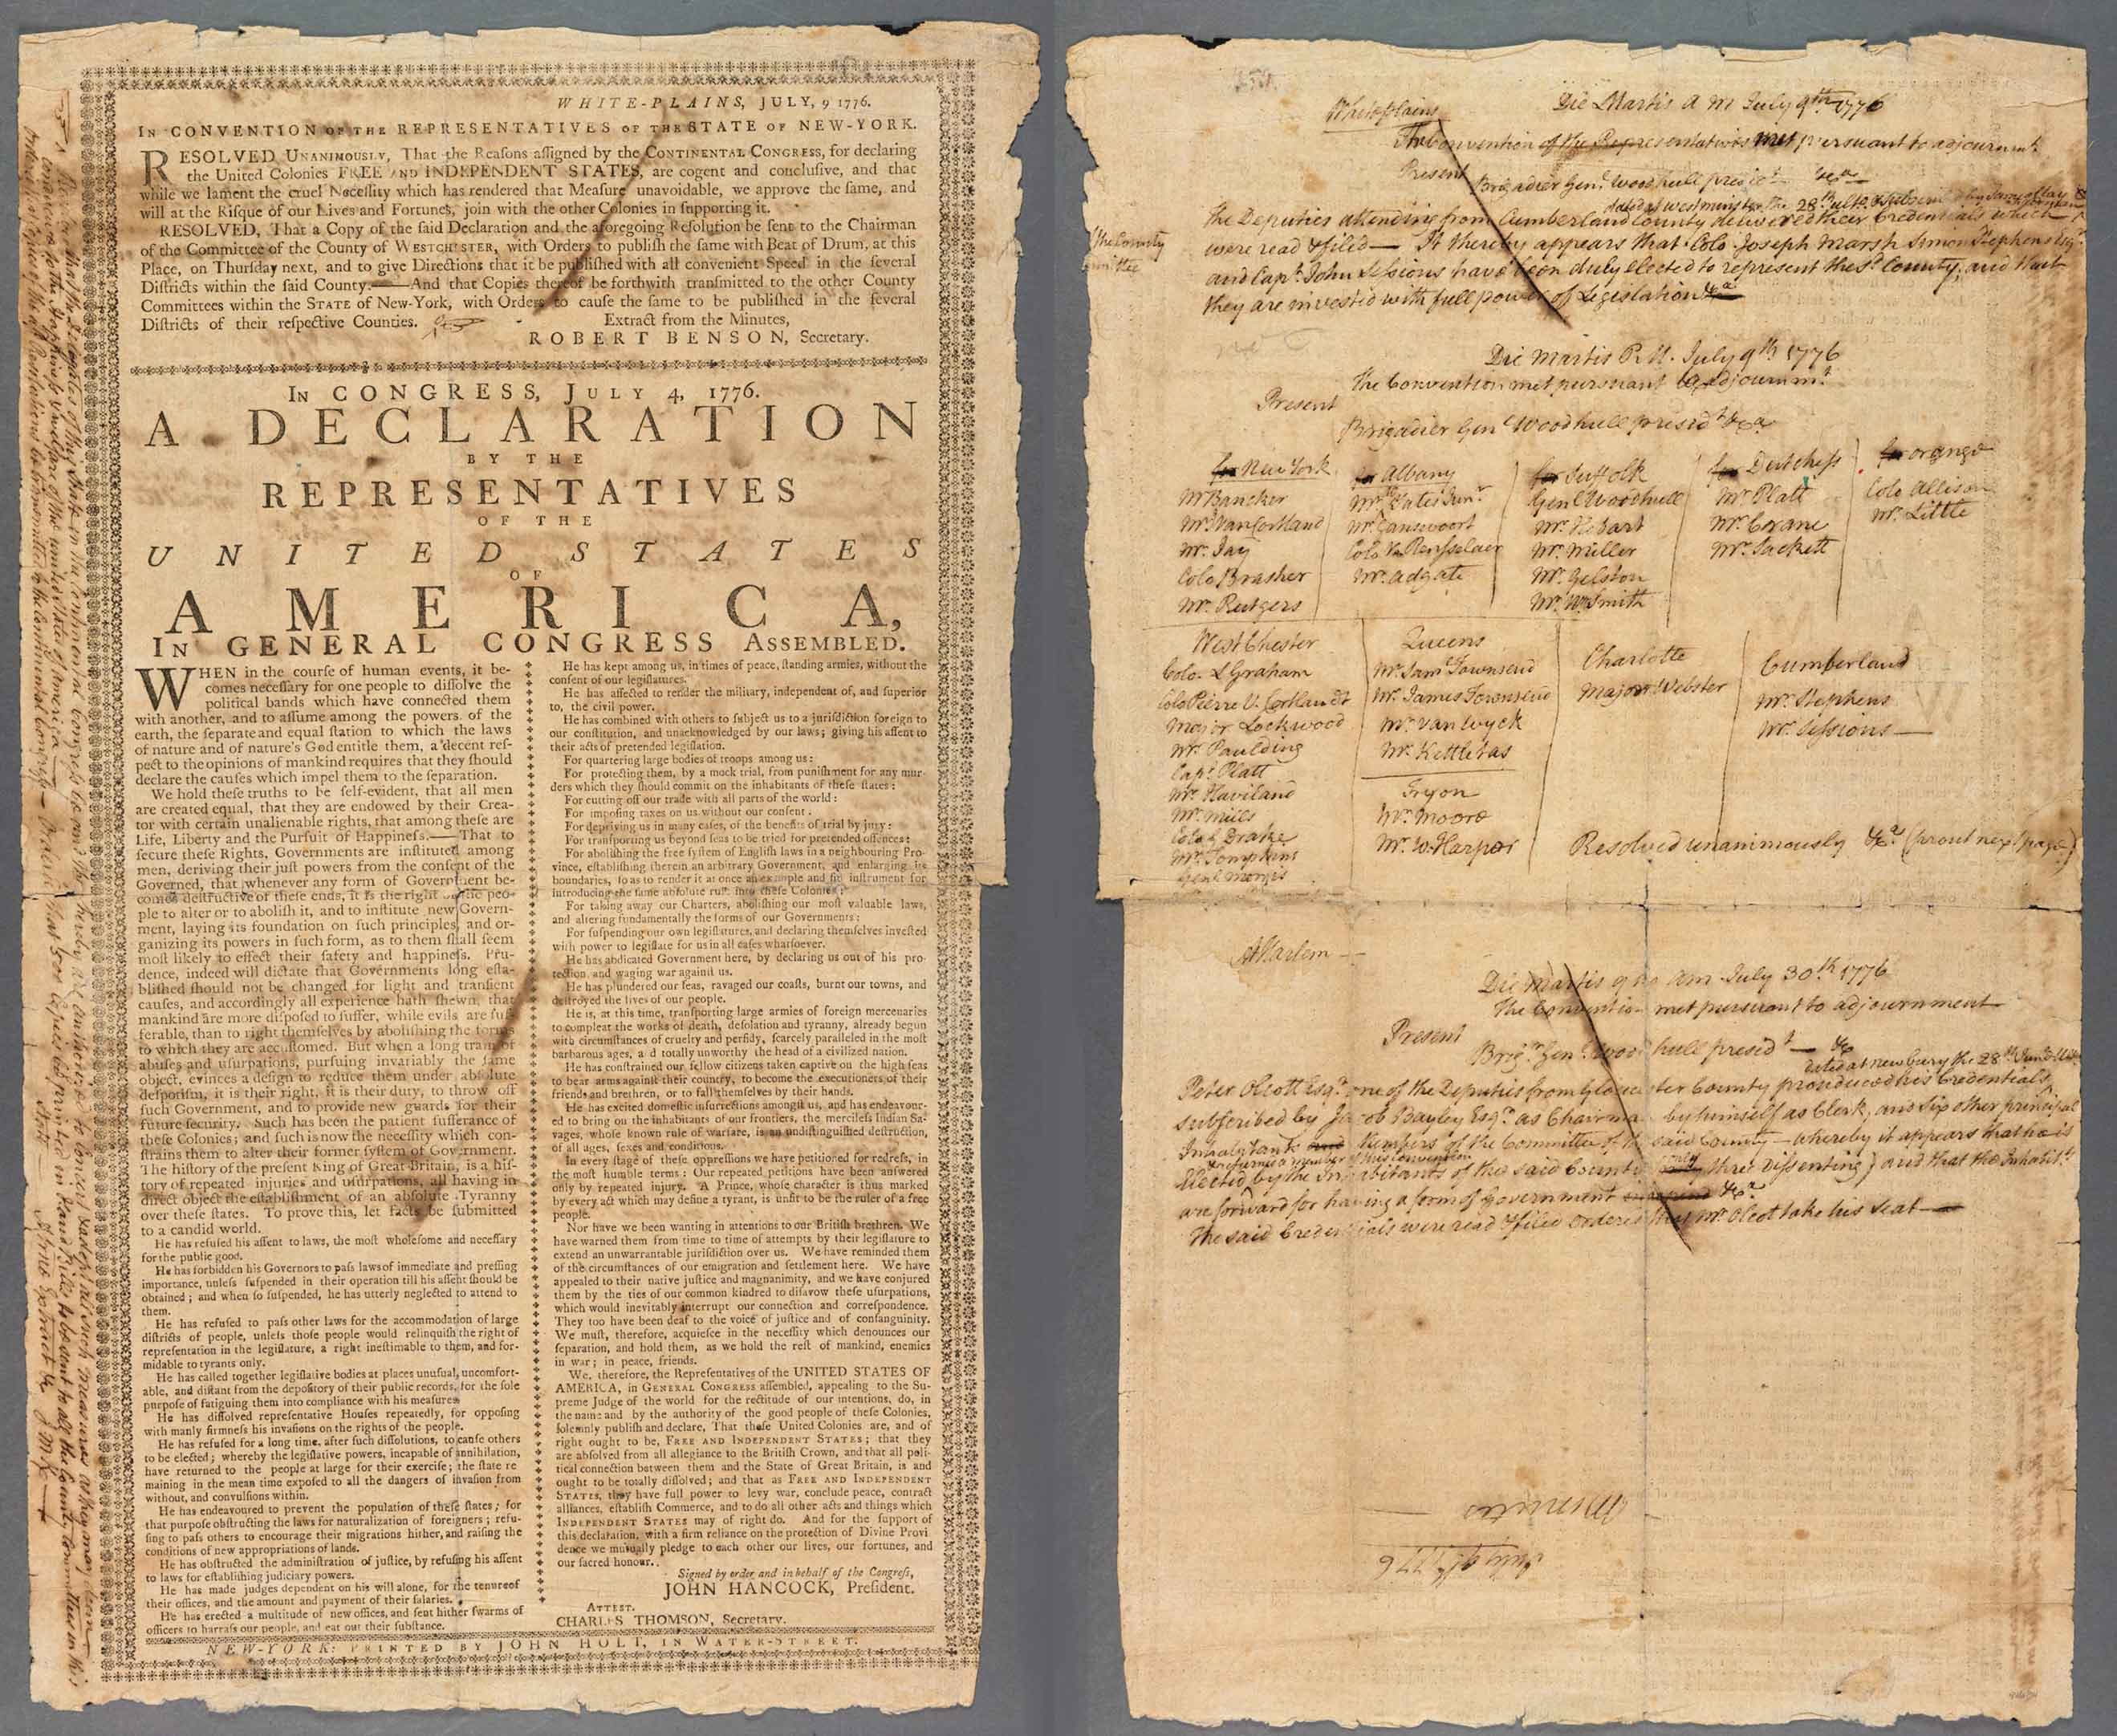 WHITE-PLAINS, JULY, 9 1776.
IN CONVENTION OF THE REPRESENTATIVES OF THE STATE OF NEW-YORK.
RESOLVED UNANIMOUSLY, That the Reasons aſſigned by the CONTINENTAL CONGRESS, for declaring
the United Colonies FREE AND INDEPENDENT STATES, are cogent and concluſive, and that
while we lament the cruel Neceſſity which has rendered that Meaſure unavoidable, we approve the ſame, and
will at the Riſque of our Lives and Fortunes, join with the other Colonies in ſupporting it.
RESOLVED, That a Copy of the ſaid Declaration and the aforegoing Reſolution be ſent to the Chairman
of the Committee of the County of WESTCHESTER, with Orders to publiſh the ſame with Beat of Drum, at this
Place, on Thurſday next, and to give Directions that it be publiſhed with all convenient Speed in the ſeveral
Diſtricts within the ſaid County.——And that Copies thereof be forthwith tranſmitted to the other County
Committees within the STATE of New-York, with Orders to cauſe the ſame to be publiſhed in the ſeveral
Diſtricts of their reſpective Counties.
Extract from the Minutes,
ROBERT BENSON, Secretary.
IN CONGRESS, JULY 4, 1776.
A DECLARATION
BY THE
REPRESENTATIVES
OF THE
UNITED STATES
OF
AMERICA,
IN GENERAL CONGRESS ASSEMBLED.
WHEN in the courſe of human events, it be-
comes neceſſary for one people to diſſolve the
political bands which have connected them
with another, and to aſſume among the powers of the
earth, the ſeparate and equal ſtation to which the laws
of nature and of nature's God entitle them, a decent reſ-
pect to the opinions of mankind requires that they ſhould
declare the cauſes which impel them to the ſeparation.
We hold theſe truths to be ſelf-evident, that all men
are created equal, that they are endowed by their Crea-
tor with certain unalienable rights, that among theſe are
Life, Liberty and the Purſuit of Happineſs.——That to
ſecure theſe Rights, Governments are inſtituted among
men, deriving their juſt powers from the conſent of the
Governed, that whenever any form of Government be-
comes deſtructive of theſe ends, it is the right of the peo-
ple to alter or to aboliſh it, and to inſtitute new Govern-
ment, laying its foundation on ſuch principles, and or-
ganizing its powers in ſuch form, as to them ſhall ſeem
moſt likely to effect their ſafety and happineſs. Pru-
dence, indeed will dictate that Governments long eſta-
bliſhed ſhould not be changed for light and tranſient
cauſes, and accordingly all experience hath ſhewn, that
mankind are more diſpoſed to ſuffer, while evils are ſuf-
ferable, than to right themſelves by aboliſhing the forms
to which they are accuſtomed. But when a long train of
abuſes and uſurpations, purſuing invariably the ſame
object, evinces a deſign to reduce them under abſolute
deſpotiſm, it is their right, it is their duty, to throw off
ſuch Government, and to provide new guards for their
future ſecurity. Such has been the patient ſufferance of
theſe Colonies; and ſuch is now the neceſſity which con-
ſtrains them to alter their former ſyſtem of Government.
The hiſtory of the preſent King of Great-Britain, is a hiſ-
tory of repeated injuries and uſurpations, all having in
direct object the eſtabliſhment of an abſolute Tyranny
over theſe ſtates. To prove this, let facts be ſubmitted
to a candid world.
He has refuſed his aſſent to laws, the moſt wholeſome and neceſſary
for the public good.
He has forbidden his Governors to paſs laws of immediate and preſſing
importance, unleſs ſuſpended in their operation till his aſſent ſhould be
obtained; and when ſo ſuſpended, he has utterly neglected to attend to
them.
He has refuſed to paſs other laws for the accommodation of large
diſtricts of people, unleſs thoſe people would relinquiſh the right of
repreſentation in the legiſlature, a right ineſtimable to them, and for-
midable to tyrants only.
He has called together legiſlative bodies at places unuſual, uncomfort-
able, and diſtant from the depoſitory of their public records, for the ſole
purpoſe of fatiguing them into compliance with his meaſures
He has diſſolved repreſentative Houſes repeatedly, for oppoſing
with manly firmneſs his invaſions on the rights of the people.
He has refuſed for a long time, after ſuch diſſolutions, to cauſe others
to be elected; whereby the legiſlative powers, incapable of annihilation,
have returned to the people at large for their exerciſe; the ſtate re
maining in the mean time expoſed to all the dangers of invaſion from
without, and convulſions within.
He has endeavoured to prevent the population of theſe ſtates; for
that purpoſe obſtructing the laws for naturalization of foreigners; refu-
ſing to paſs others to encourage their migrations hither, and raiſing the
conditions of new appropriations of lands.
He has obſtructed the adminiſtration of juſtice, by refuſing his aſſent
to laws for eſtabliſhing judiciary powers.
He has made judges dependent on his will alone, for the tenure of
their offices, and the amount and payment of their ſalaries.
He has erected a multitude of new offices, and ſent hither ſwarms of
officers to harraſs our people, and eat out their ſubſtance.
He has kept among us, in times of peace, ſtanding armies, without the
conſent of our legiſlatures.
He has affected to render the military, independent of, and ſuperior
to, the civil power.
He has combined with others to ſubject us to a juriſdiction foreign to
our conſtitution, and unacknowledged by our laws; giving his aſſent to
their acts of pretended legiſlation.
For quartering large bodies of troops among us:
For protecting them, by a mock trial, from puniſhment for any mur-
ders which they ſhould commit on the inhabitants of theſe ſtates:
For cutting off our trade with all parts of the world:
For impoſing taxes on us without our conſent.
For depriving us in many caſes, of the benefits of trial by jury:
For tranſporting us beyond ſeas to be tried for pretended offences:
For aboliſhing the free ſyſtem of Engliſh laws in a neighbouring Pro-
vince, eſtabliſhing therein an arbitrary Government, and enlarging its
boundaries, ſo as to render it at once an example and fit inſtrument for
introducing the ſame abſolute rule into theſe Colonies:
For taking away our Charters, aboliſhing our moſt valuable laws,
and altering fundamentally the forms of our Governments:
For ſuſpending our own legiſlatures, and declaring themſelves inveſted
with power to legiſlate for us in all caſes whatſoever.
He has abdicated Government here, by declaring us out of his pro-
tection and waging war againſt us.
He has plundered our ſeas, ravaged our coaſts, burnt our towns, and
deſtroyed the lives of our people.
He is, at this time, tranſporting large armies of foreign mercenaries
to compleat the works of death, deſolation and tyranny, already begun
with circumſtances of cruelty and perfidy, ſcarcely paralleled in the moſt
barbarous ages, a d totally unworthy the head of a civilized nation.
He has conſtrained our fellow citizens taken captive on the high ſeas
to bear arms againſt their country, to become the executioners of their
friends and brethren, or to fall themſelves by their hands.
He has excited domeſtic inſurrections amongſt us, and has endeavour-
ed to bring on the inhabitants of our frontiers, the mercileſs Indian Sa-
vages, whoſe known rule of warfare, is an undiſtinguiſhed deſtruction,
of all ages, ſexes and conditions.
In every ſtage of theſe oppreſſions we have petitioned for redreſs, in
the moſt humble terms: Our repeated petitions have been anſwered
only by repeated injury. A Prince, whoſe character is thus marked
by every act which may define a tyrant, is unfit to be the ruler of a free
people.
Nor have we been wanting in attentions to our Britiſh brethren. We
have warned them from time to time of attempts by their legiſlature to
extend an unwarrantable juriſdiction over us. We have reminded them
of the circumſtances of our emigration and ſettlement here. We have
appealed to their native juſtice and magnanimity, and we have conjured
them by the ties of our common kindred to diſavow theſe uſurpations,
which would inevitably interrupt our connection and correſpondence.
They too have been deaf to the voice of juſtice and of conſanguinity.
We muſt, therefore, acquieſce in the neceſſity which denounces our
ſeparation, and hold them, as we hold the reſt of mankind, enemies
in war; in peace, friends.
We, therefore, the Repreſentatives of the UNITED STATES OF
AMERICA, in GENERAL CONGRESS aſſembled, appealing to the Su-
preme Judge of the world for the rectitude of our intentions, do, in
the name and by the authority of the good people of theſe Colonies,
ſolemnly publiſh and declare, That theſe United Colonies are, and of
right ought to be, FREE AND INDEPENDENT STATES; that they
are abſolved from all allegiance to the Britiſh Crown, and that all poli-
tical connection between them and the State of Great Britain, is and
ought to be totally diſſolved; and that as FREE AND INDEPENDENT
STATES, they have full power to levy war, conclude peace, contract
alliances, eſtabliſh Commerce, and to do all other acts and things which
INDEPENDENT STATES may of right do. And for the ſupport of
this declaration, with a firm reliance on the protection of Divine Provi
dence we mutually pledge to each other our lives, our fortunes, and
our ſacred honour.
Signed by order and in behalf of the Congreſs,
JOHN HANCOCK, Preſident.
ATTEST.
CHARLES THOMSON, Secretary.
NEW-YORK: PRINTED BY JOHN HOLT, IN WATER-STREET.
Resolved that the Delegates of this State in the Continental Congress be and they hereby are authorized to concert and adopt all such measures as they may deem
conducive to the happiness & welfare of the united States of America—
Ordered that 500 Copies be printed in Hand Bills & be sent to all the County Committees in this
State—
A true Extract
Whiteplains
Die Martis A M July 9th 1776
The Convention of the Representatives met persuant to adjournmt.
Present
Brigadier Genl. Woodhull presidt. &ca
dated at Westminster the 28th ulto.
the Deputies attending from Cumberland County delivered their Credentials which
were read & filed— It thereby appears that Colo Joseph Marsh Simon Stephens Esqr.
and Capt. John Sessions have been duly elected to represent the sd. County, and that
they are invested with full power of Legislation &ca
the County
mittee
Die Martis P.M. July 9th 1776
the Convention met pursuant to adjournmt.
Present
Brigadier Genl Woodhull presidt &ca
for New York
Mr Bancker
Mr. VanCortland
Mr. Jay
Colo Brasher
Mr. Rutgers
for Albany
Mr. Yates Junr.
Mr. Gansevoort
Colo. Vn. Rensselaer
Mr. Adgate
for Suffolk
Genl Woodhull
Mr. Hobart
Mr. Miller
Mr. Gelston
Mr. Wm. Smith
for Dutchess
Mr. Platt
Mr. Crane
Mr. Sackett
for orange
Colo Allison
Mr. Little
West Chester
Colo. L Graham
Colo Pierre V. Cortlandt
Major Lockwood
Mr. Paulding
Capt. Platt
Mr. Haviland
Mr. Mills
Colo Drake
Mr. Tompkins
Genl Morris
Queens
Mr. Saml Townsend
Mr. James Townsend
Mr. Van Wyck
Mr. Kettletas
Tryon
Mr. Moore
Mr. W. Harper
Charlotte
Major Webster
Cumberland
Mr. Stephens
Mr. Sessions—
Resolved unanimously &ca (prout next page)
Harlem—
Die Martis am July 30th 1776
The Convention met pursuant to adjournment
Present
Brigr. Genl. Woodhull presidt— &c
dated at newbury the 28th
Peter Olcott Esqr. one of the Deputies from Gloucester County produced his Credentials
subscribed by Jacob Bayley Esqr. as Chairman by himself as Clerk, and six other principal
Inhabitants members of the Committee of the said County—whereby it appears that he is
returned a member of this convention
Elected by the Inhabitants of the said County (only three Dissenting) and that the Inhabitts.
are forward for having a form of Government &ca
The said Credentials were read & filed Ordered that Mr. Olcott take his seat—
Minutes
July 9th 1776